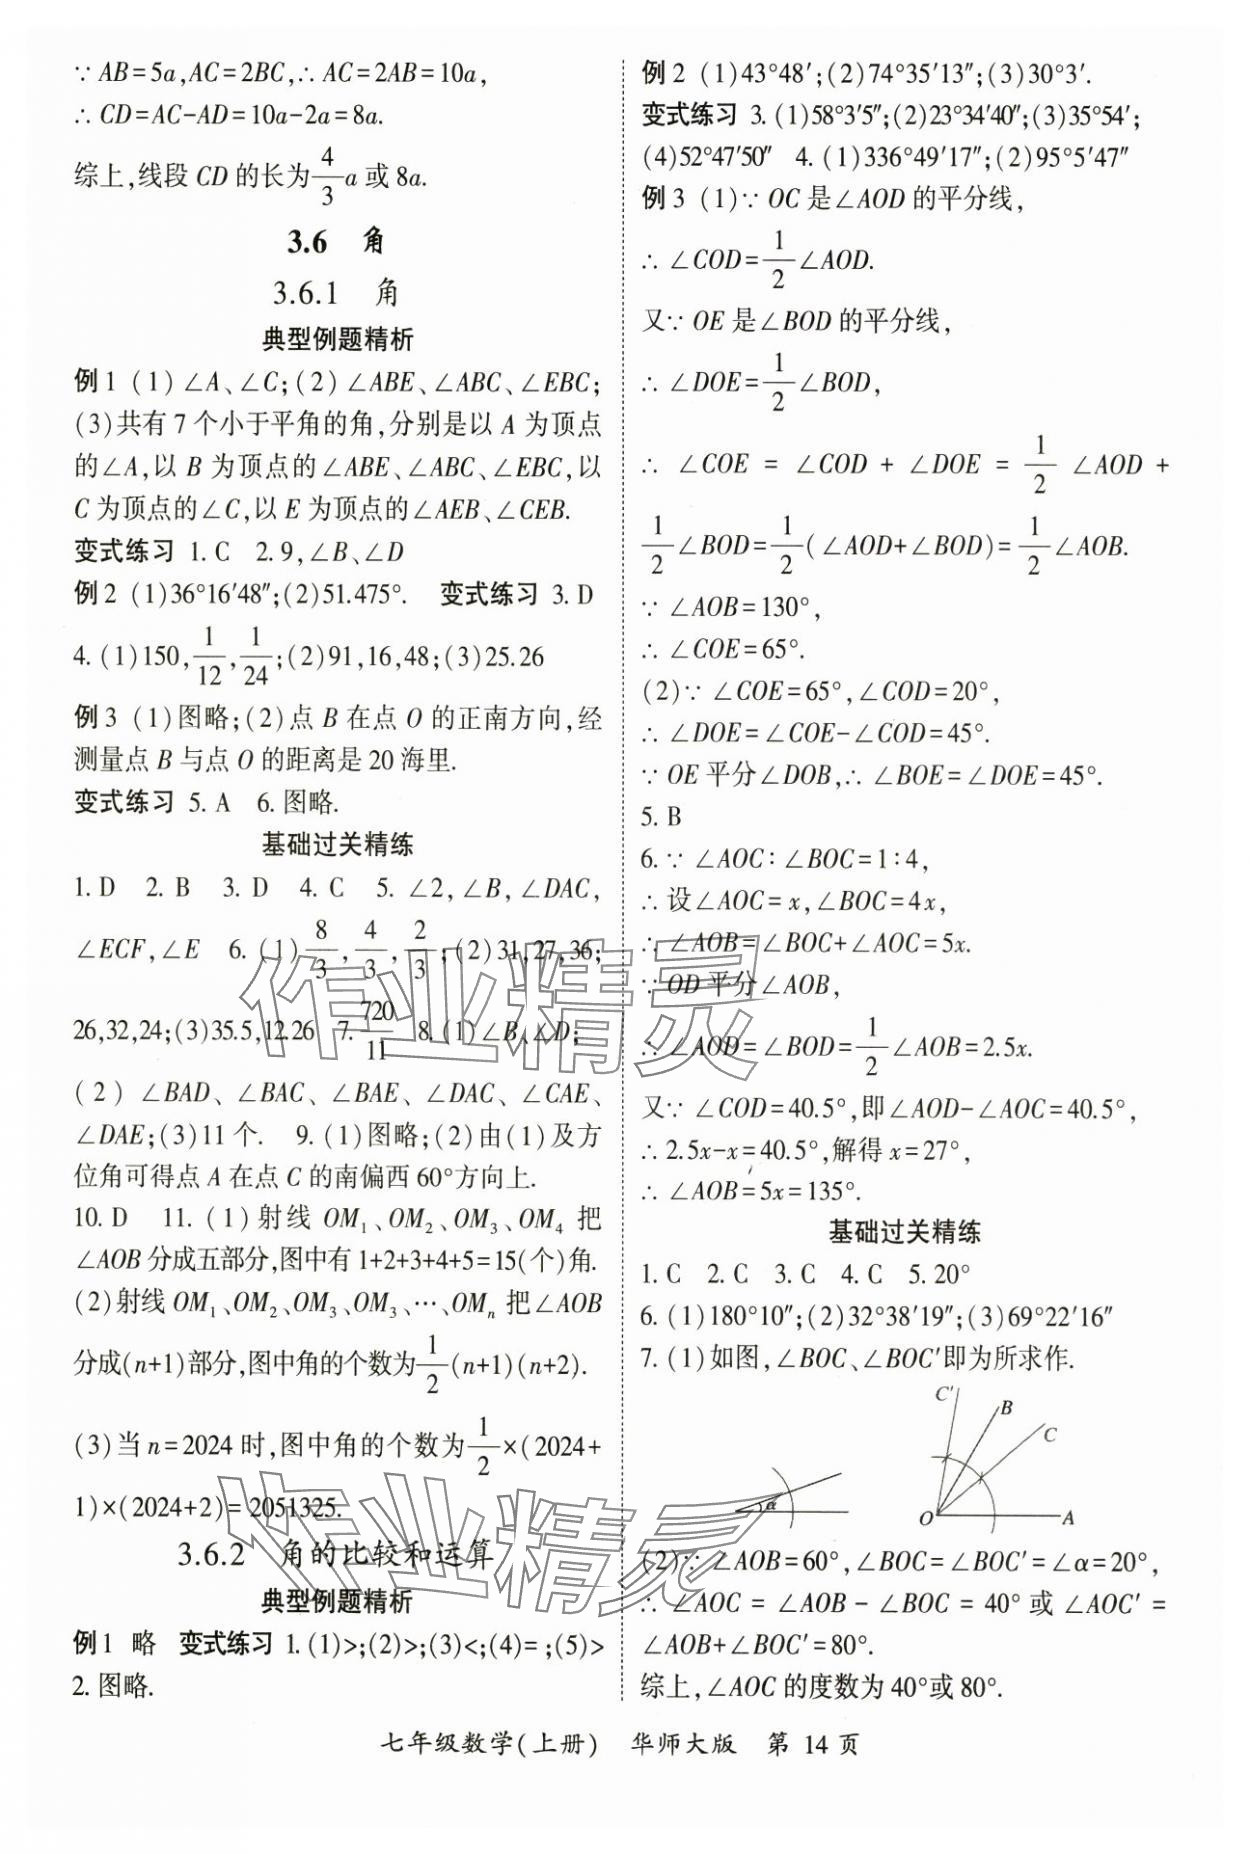 ∵ AB=5a,AC=2BC,∴ AC=2AB=10a,
∴ CD=AC-AD=10a-2a=8a.
综上,线段 CD 的长为4/3a 或 8a.
3.6 角
3.6.1 角
典型例题精析
例 1 (1) ∠A、∠C;(2) ∠ABE、∠ABC、∠EBC;
(3)共有 7 个小于平角的角,分别是以 A 为顶点
的∠A,以 B 为顶点的∠ABE、∠ABC、∠EBC,以
C 为顶点的∠C,以 E 为顶点的∠AEB、∠CEB.
变式练习 1. C 2. 9,∠B、∠D
例 2 (1)36°16′48″;(2)51.475°. 变式练习 3. D
4. (1)150,1/12,1/24;(2)91,16,48;(3)25.26
例 3 (1)图略;(2)点 B 在点 O 的正南方向,经
测量点 B 与点 O 的距离是 20 海里.
变式练习 5. A 6. 图略.
基础过关精练
1. D 2. B 3. D 4. C 5. ∠2,∠B,∠DAC,
∠ECF,∠E 6. (1)8/3,4/3,2/3;(2)31,27,36;
26,32,24;(3)35.5,12.26 7. 720/11 8. (1)∠B、∠D;
(2) ∠BAD、∠BAC、∠BAE、∠DAC、∠CAE、
∠DAE;(3)11 个. 9. (1)图略;(2)由(1)及方
位角可得点 A 在点 C 的南偏西 60°方向上.
10. D 11. (1)射线 OM₁、OM₂、OM₃、OM₄ 把
∠AOB 分成五部分,图中有 1+2+3+4+5=15(个)角.
(2)射线 OM₁、OM₂、OM₃、OM₃、…、OMₙ 把∠AOB
分成(n+1)部分,图中角的个数为1/2(n+1)(n+2).
(3)当 n=2024 时,图中角的个数为1/2×(2024+
1)×(2024+2)=2051325.
3.6.2 角的比较和运算
典型例题精析
例 1 略 变式练习 1. (1)>;(2)>;(3)<;(4)= ;(5)>
2. 图略.
例 2 (1)43°48′;(2)74°35′13″;(3)30°3′.
变式练习 3. (1)58°3′5″;(2)23°34′40″;(3)35°54′;
(4)52°47′50″ 4. (1)336°49′17″;(2)95°5′47″
例 3 (1)∵ OC 是∠AOD 的平分线,
∴ ∠COD=1/2∠AOD.
又∵ OE 是∠BOD 的平分线,
∴ ∠DOE=1/2∠BOD,
∴ ∠COE = ∠COD + ∠DOE = 1/2 ∠AOD +
1/2∠BOD=1/2(∠AOD+∠BOD)=1/2∠AOB.
∵ ∠AOB=130°,
∴ ∠COE=65°.
(2)∵ ∠COE=65°,∠COD=20°,
∴ ∠DOE=∠COE-∠COD=45°.
∵ OE 平分∠DOB,∴ ∠BOE=∠DOE=45°.
5. B
6. ∵ ∠AOC∶∠BOC=1∶4,
∴ 设∠AOC=x,∠BOC=4x,
∴ ∠AOB=∠BOC+∠AOC=5x.
∵ OD 平分∠AOB,
∴ ∠AOD=∠BOD=1/2∠AOB=2.5x.
又∵ ∠COD=40.5°,即∠AOD-∠AOC=40.5°,
∴ 2.5x-x=40.5°,解得 x=27°,
∴ ∠AOB=5x=135°.
基础过关精练
1. C 2. C 3. C 4. C 5. 20°
6. (1)180°10″;(2)32°38′19″;(3)69°22′16″
7. (1)如图,∠BOC、∠BOC′即为所求作.
C′
B
C
α
O
A
(2)∵ ∠AOB=60°,∠BOC=∠BOC′=∠α=20°,
∴ ∠AOC = ∠AOB - ∠BOC = 40° 或 ∠AOC′ =
∠AOB+∠BOC′=80°.
综上,∠AOC 的度数为 40°或 80°.
七年级数学(上册) 华师大版 第 14 页
作业精灵
作业精灵